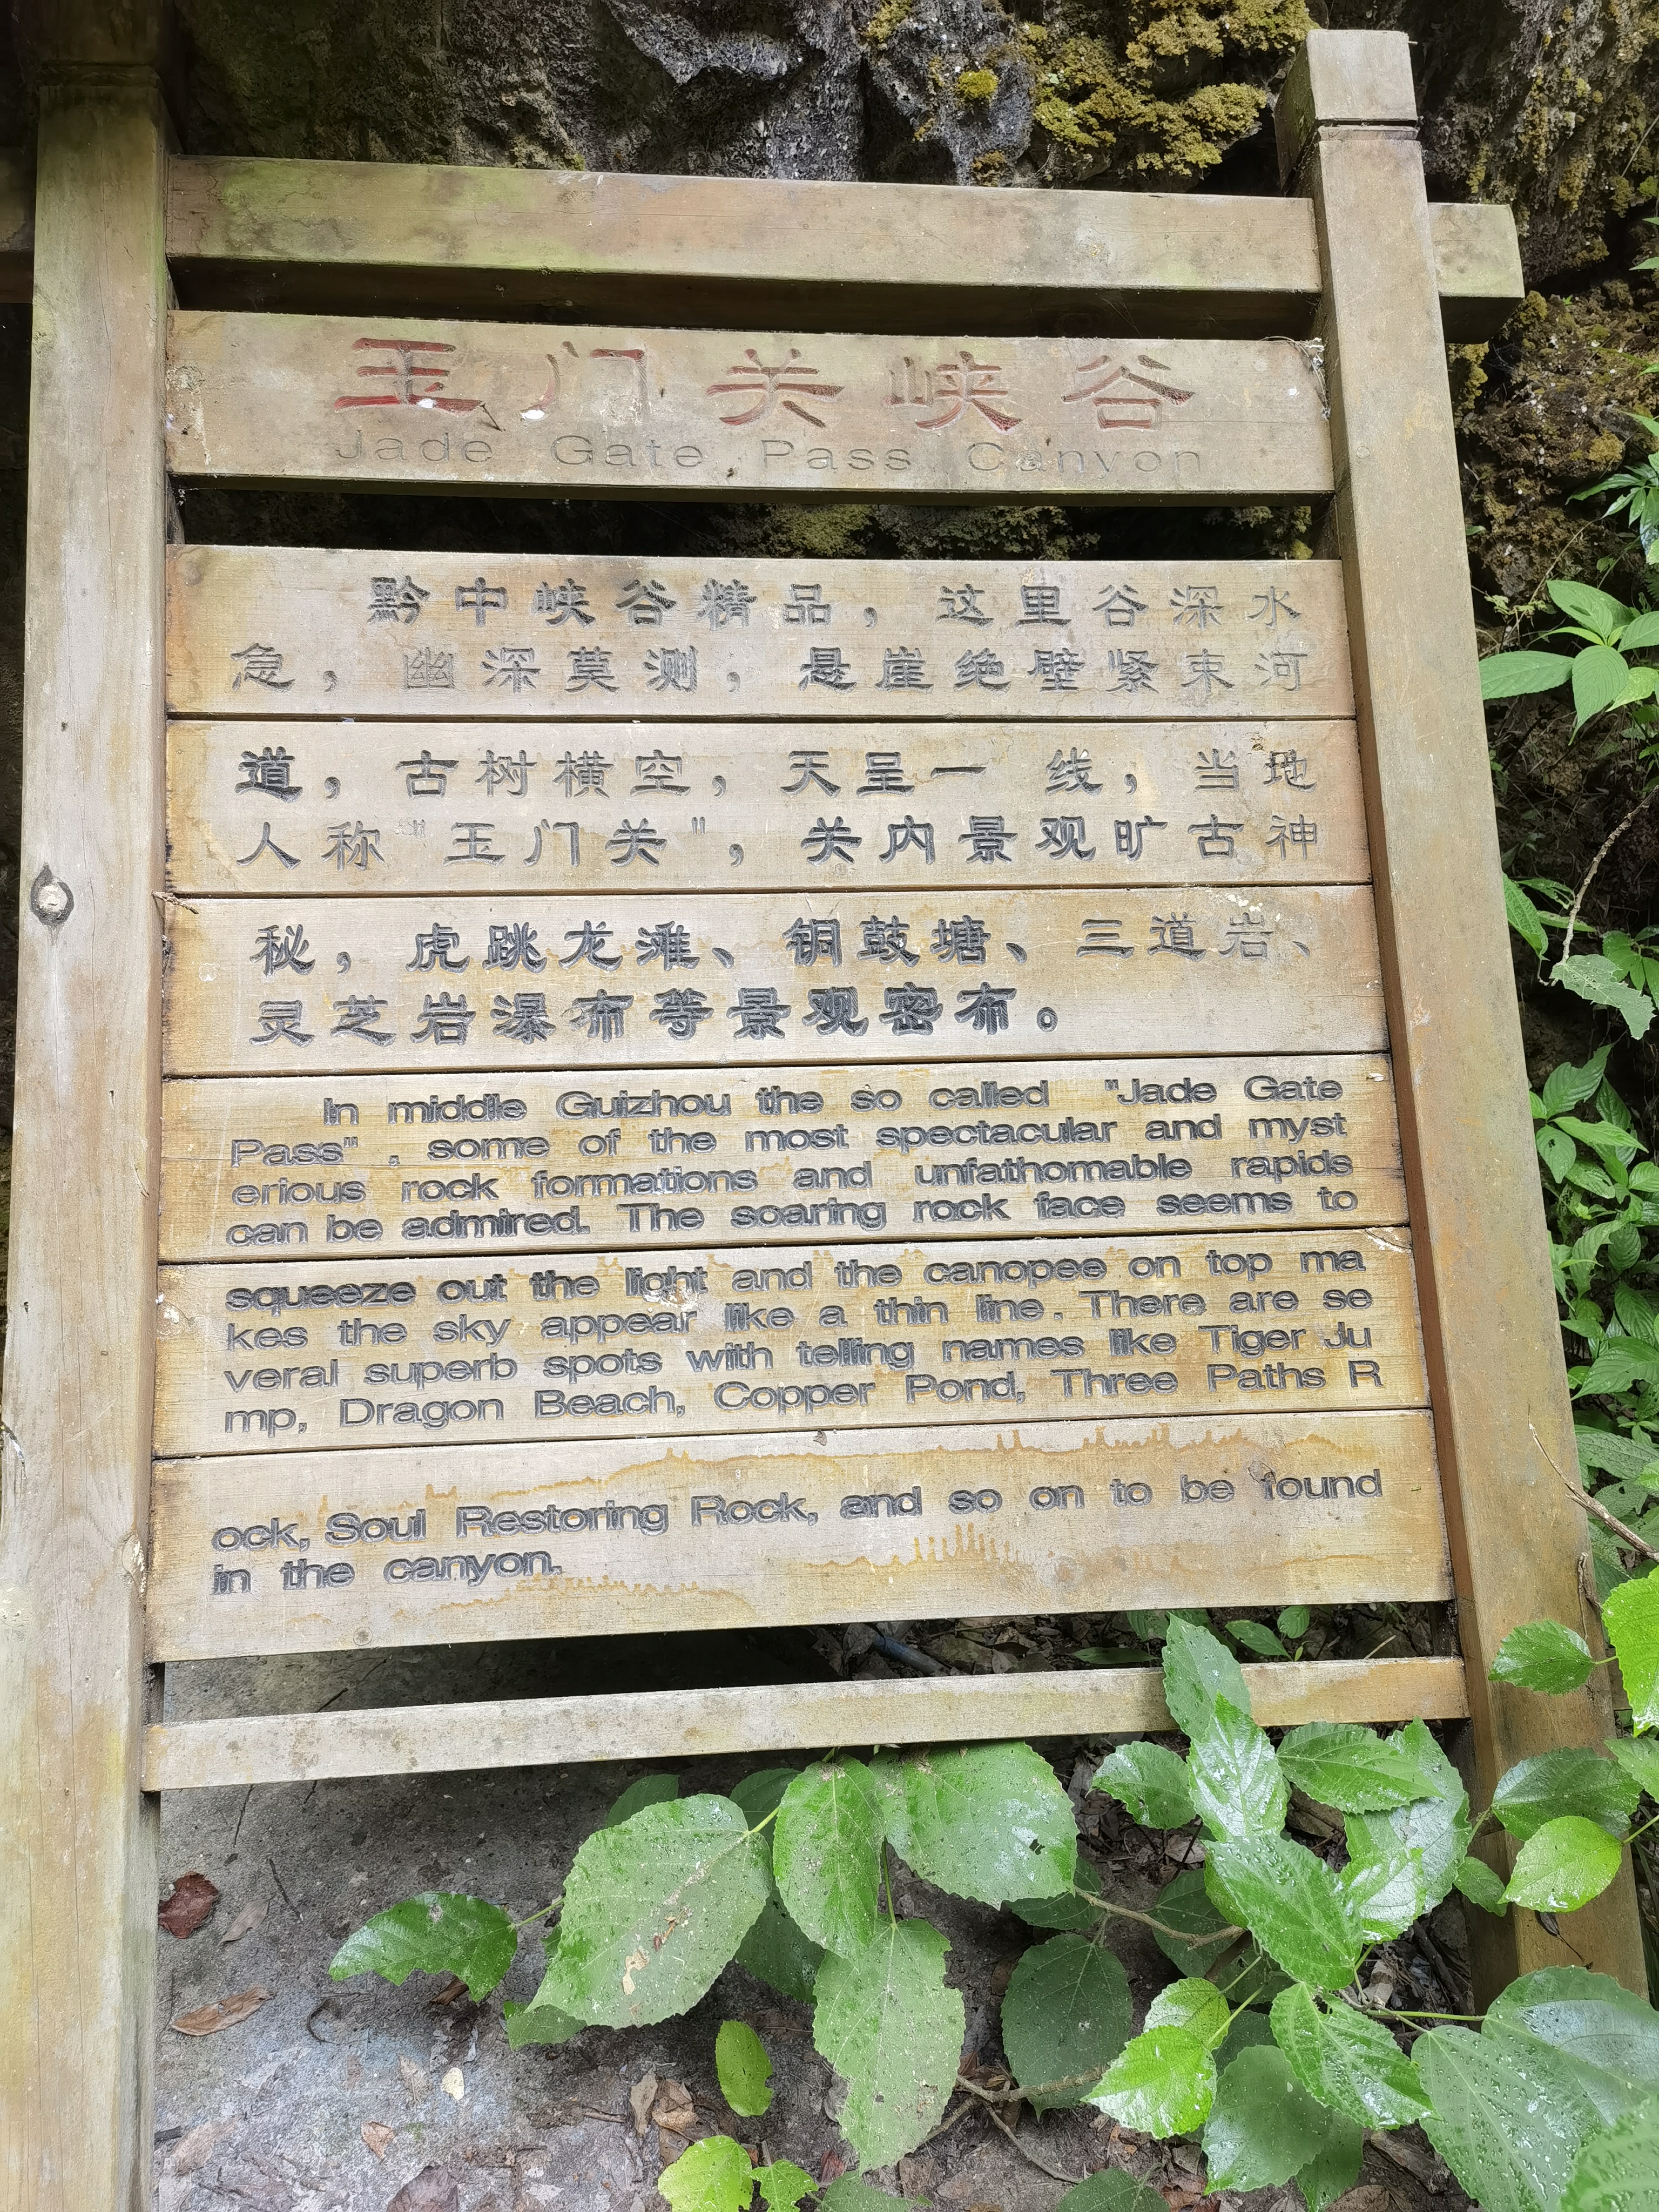 玉门关峡谷
Jade Gate Pass Canyon
黔中峡谷精品，这里谷深水
急，幽深莫测，悬崖绝壁紧束河
道，古树横空，天呈一 线，当地
人称"玉门关"，关内景观旷古神
秘，虎跳龙滩、铜鼓塘、三道岩、
灵芝岩瀑布等景观密布。
In middle Guizhou the so called "Jade Gate
Pass" , some of the most spectacular and myst
erious rock formations and unfathomable rapids
can be admired. The soaring rock face seems to
squeeze out the light and the canopee on top ma
kes the sky appear like a thin line. There are se
veral superb spots with telling names like Tiger Ju
mp, Dragon Beach, Copper Pond, Three Paths R
ock, Soul Restoring Rock, and so on to be found
in the canyon.